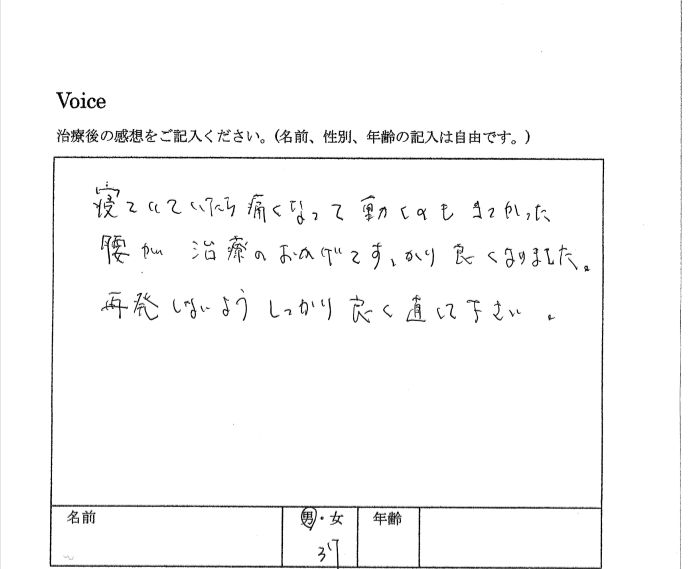 Voice
治療後の感想をご記入ください。(名前、性別、年齢の記入は自由です。)
寝ていていたら痛くなって動くのもきつかった
腰が 治療のおかげですっかり良くなりました。
再発しないようしっかり良く直して下さい。
名前 男・女 年齢
37